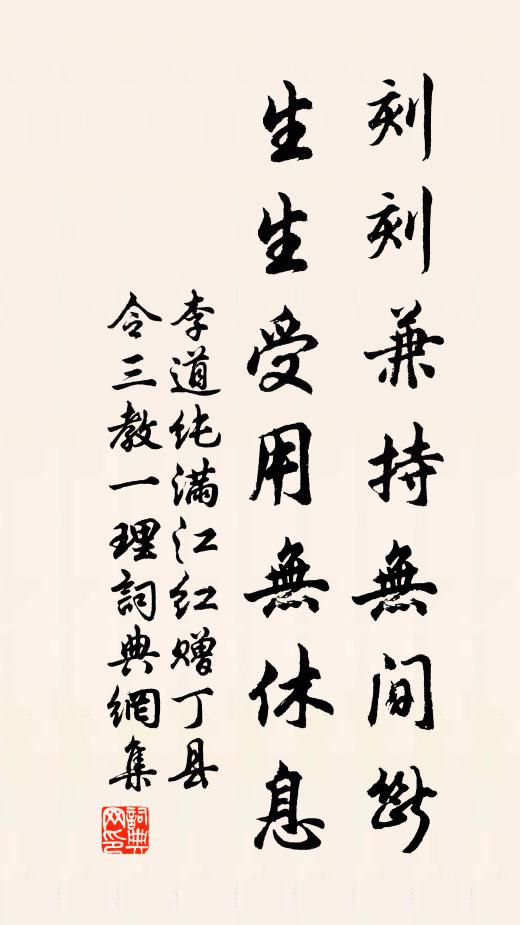 刻刻兼持無间斷
生生受用無休息
李道纯满江红赠丁县
令三教一理詞典網集
詞典网印